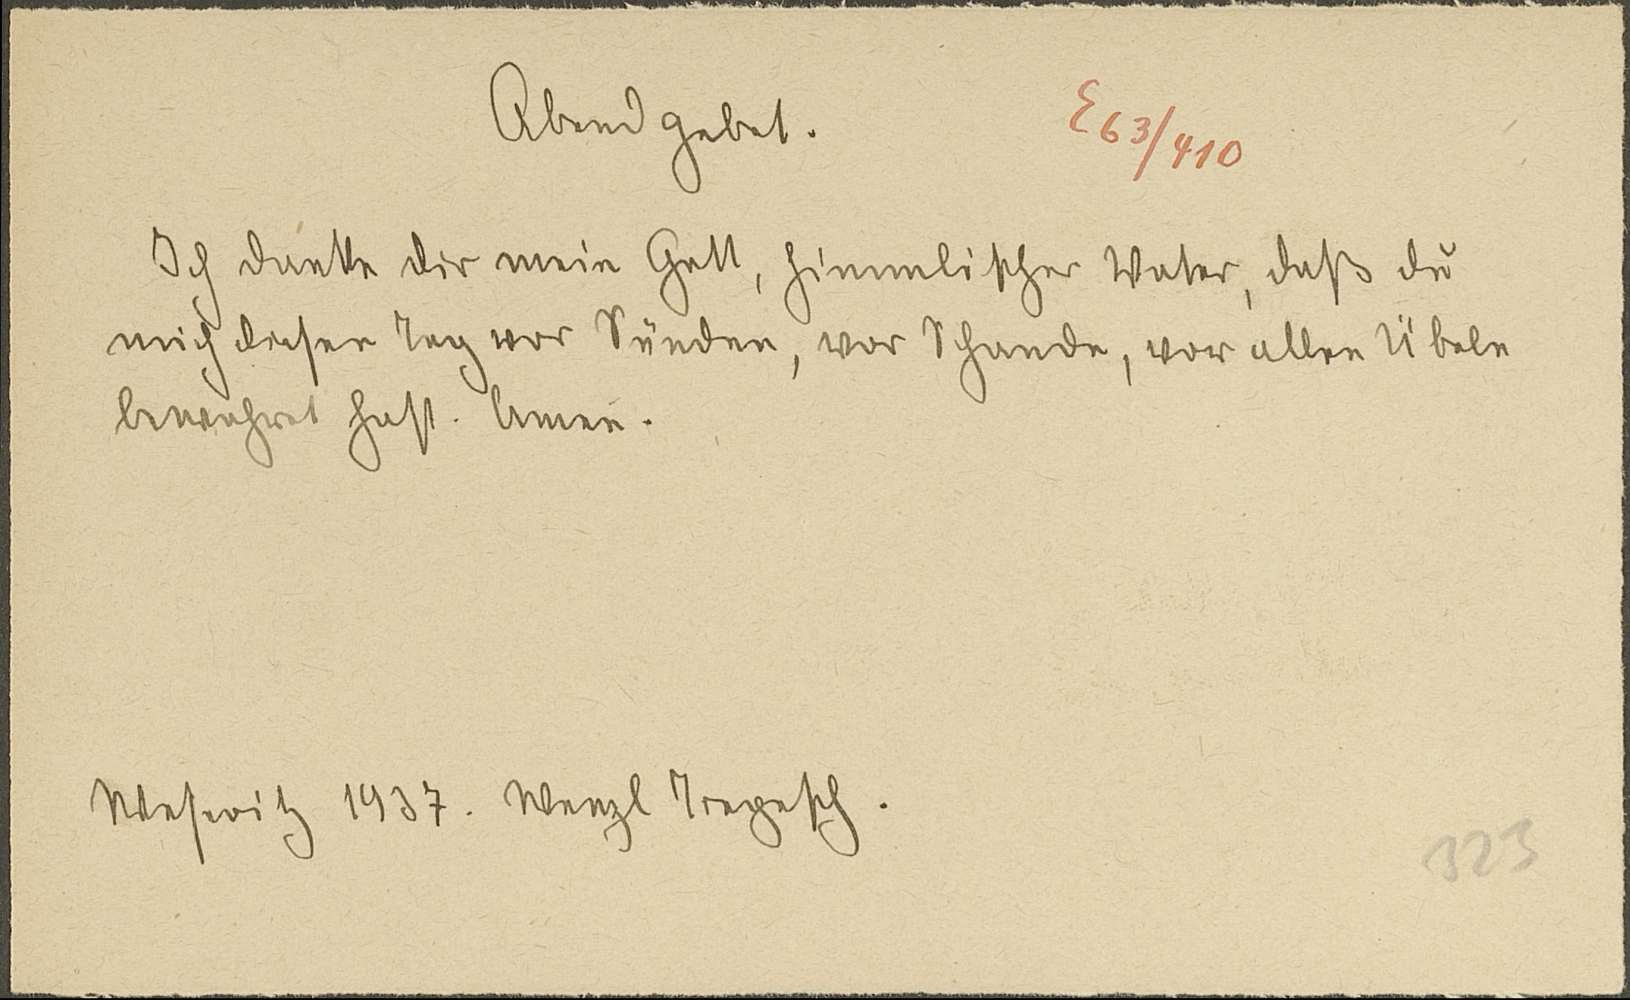 Abendgebet.
E63/410
Ich danke dir mein Gott, himmlischer Vater, daß du
mich diesen Tag vor Sünden, vor Schande, vor allen Übeln
bewahret hast. Amen.
Weseritz 1937. Wenzl
323